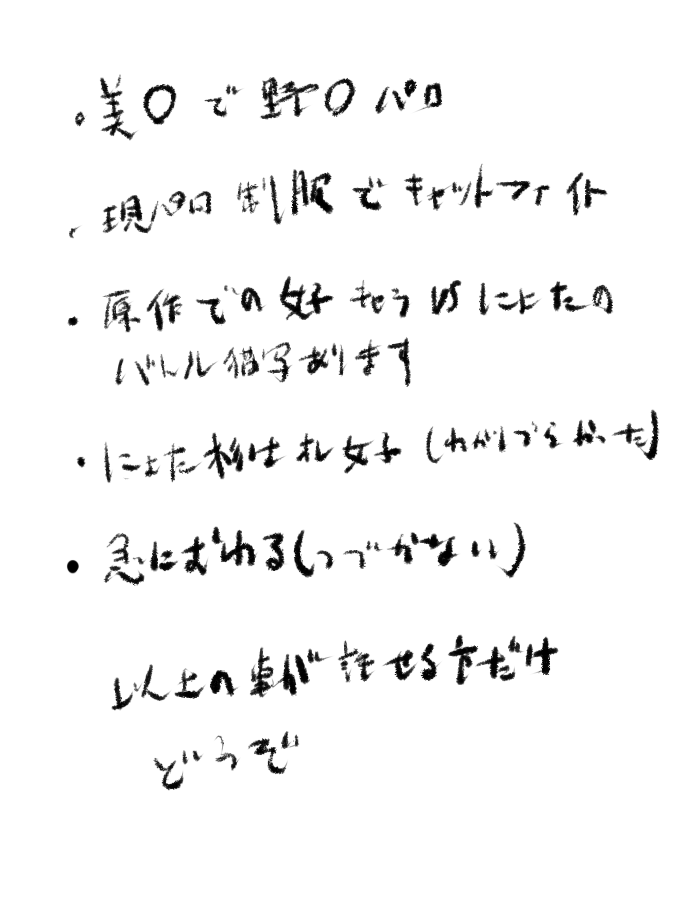 ・美〇で野〇パロ
・現パロ制服でキャットファイト
・原作での女子きゃらVSにょたの
バトル描写あります
・にょた杉はオレ女子(わかりづらかった)
・急におわる(つづかない)
以上の事が許せる方だけ
どうぞ